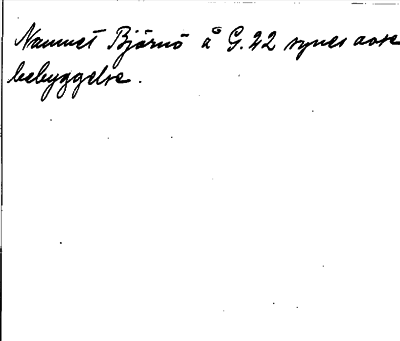 Namnet Björnö å G. 22 synes avse
bebyggelse.